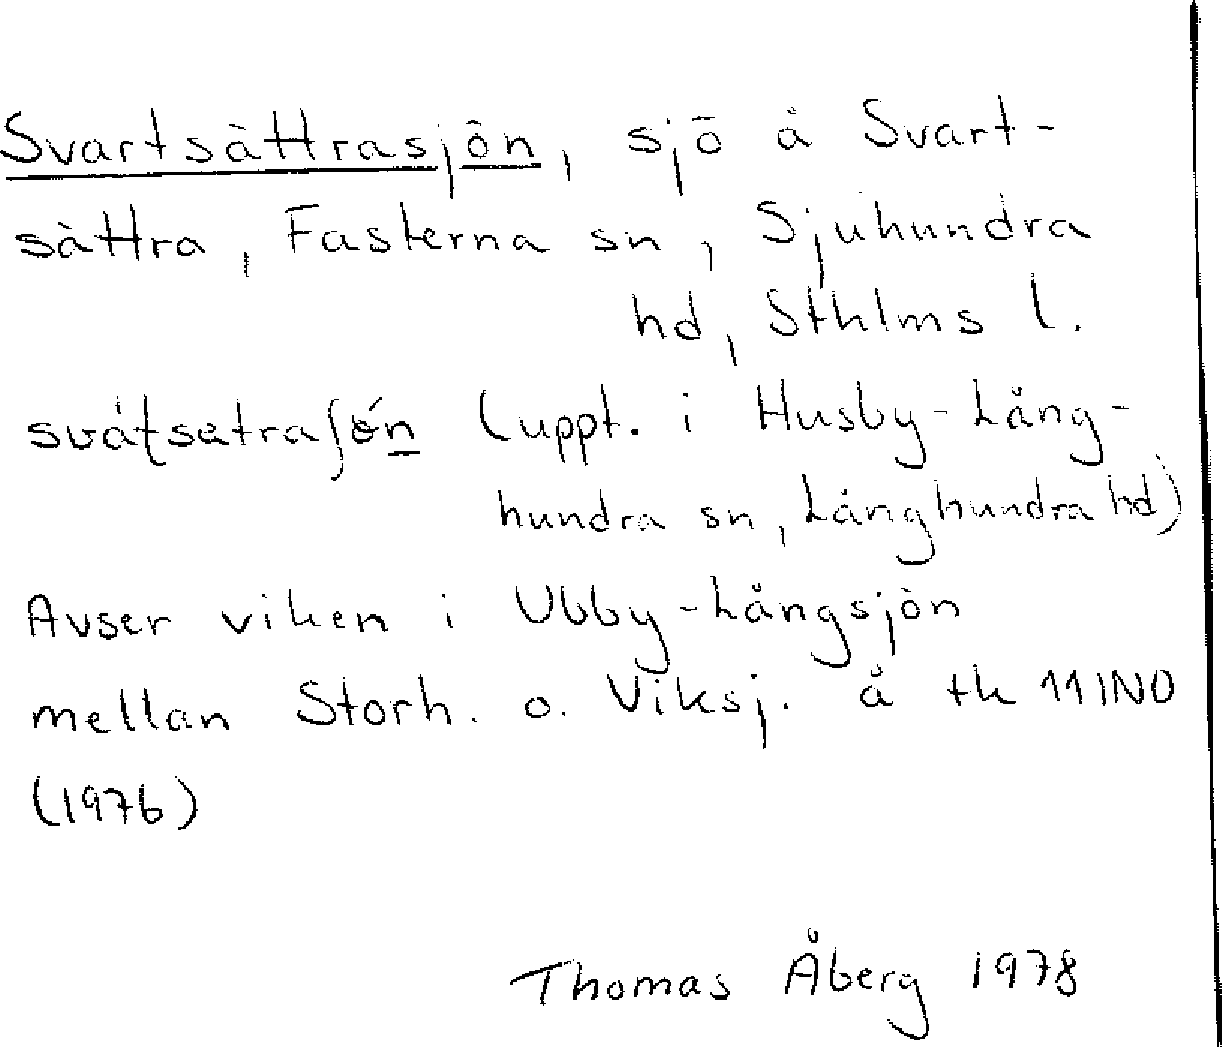 Svartsättrasjön, sjö å Svart-
sättra, Fasterna sn, Sjuhundra
hd, Sthlms l.
(uppt. i Husby-Lång-
hundra sn, Långhundra hd)
Avser viken i Ubby-Långsjön
mellan Storh. o. Viksj. å tk 11INO
(1976)
Thomas Åberg 1978